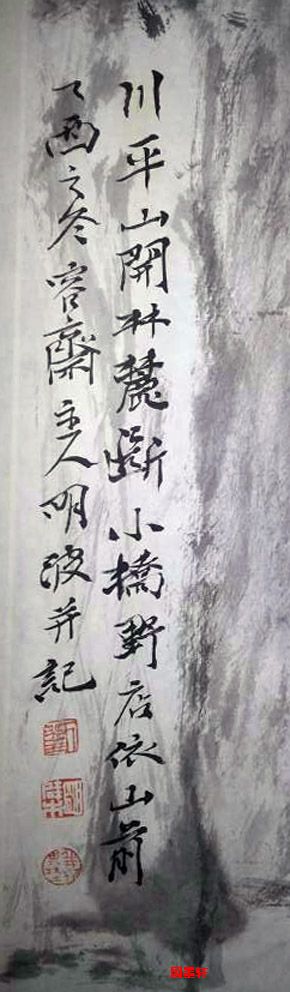 川平山開林麓斷小橋野店依山前
丁酉之冬容齋主人明波并記